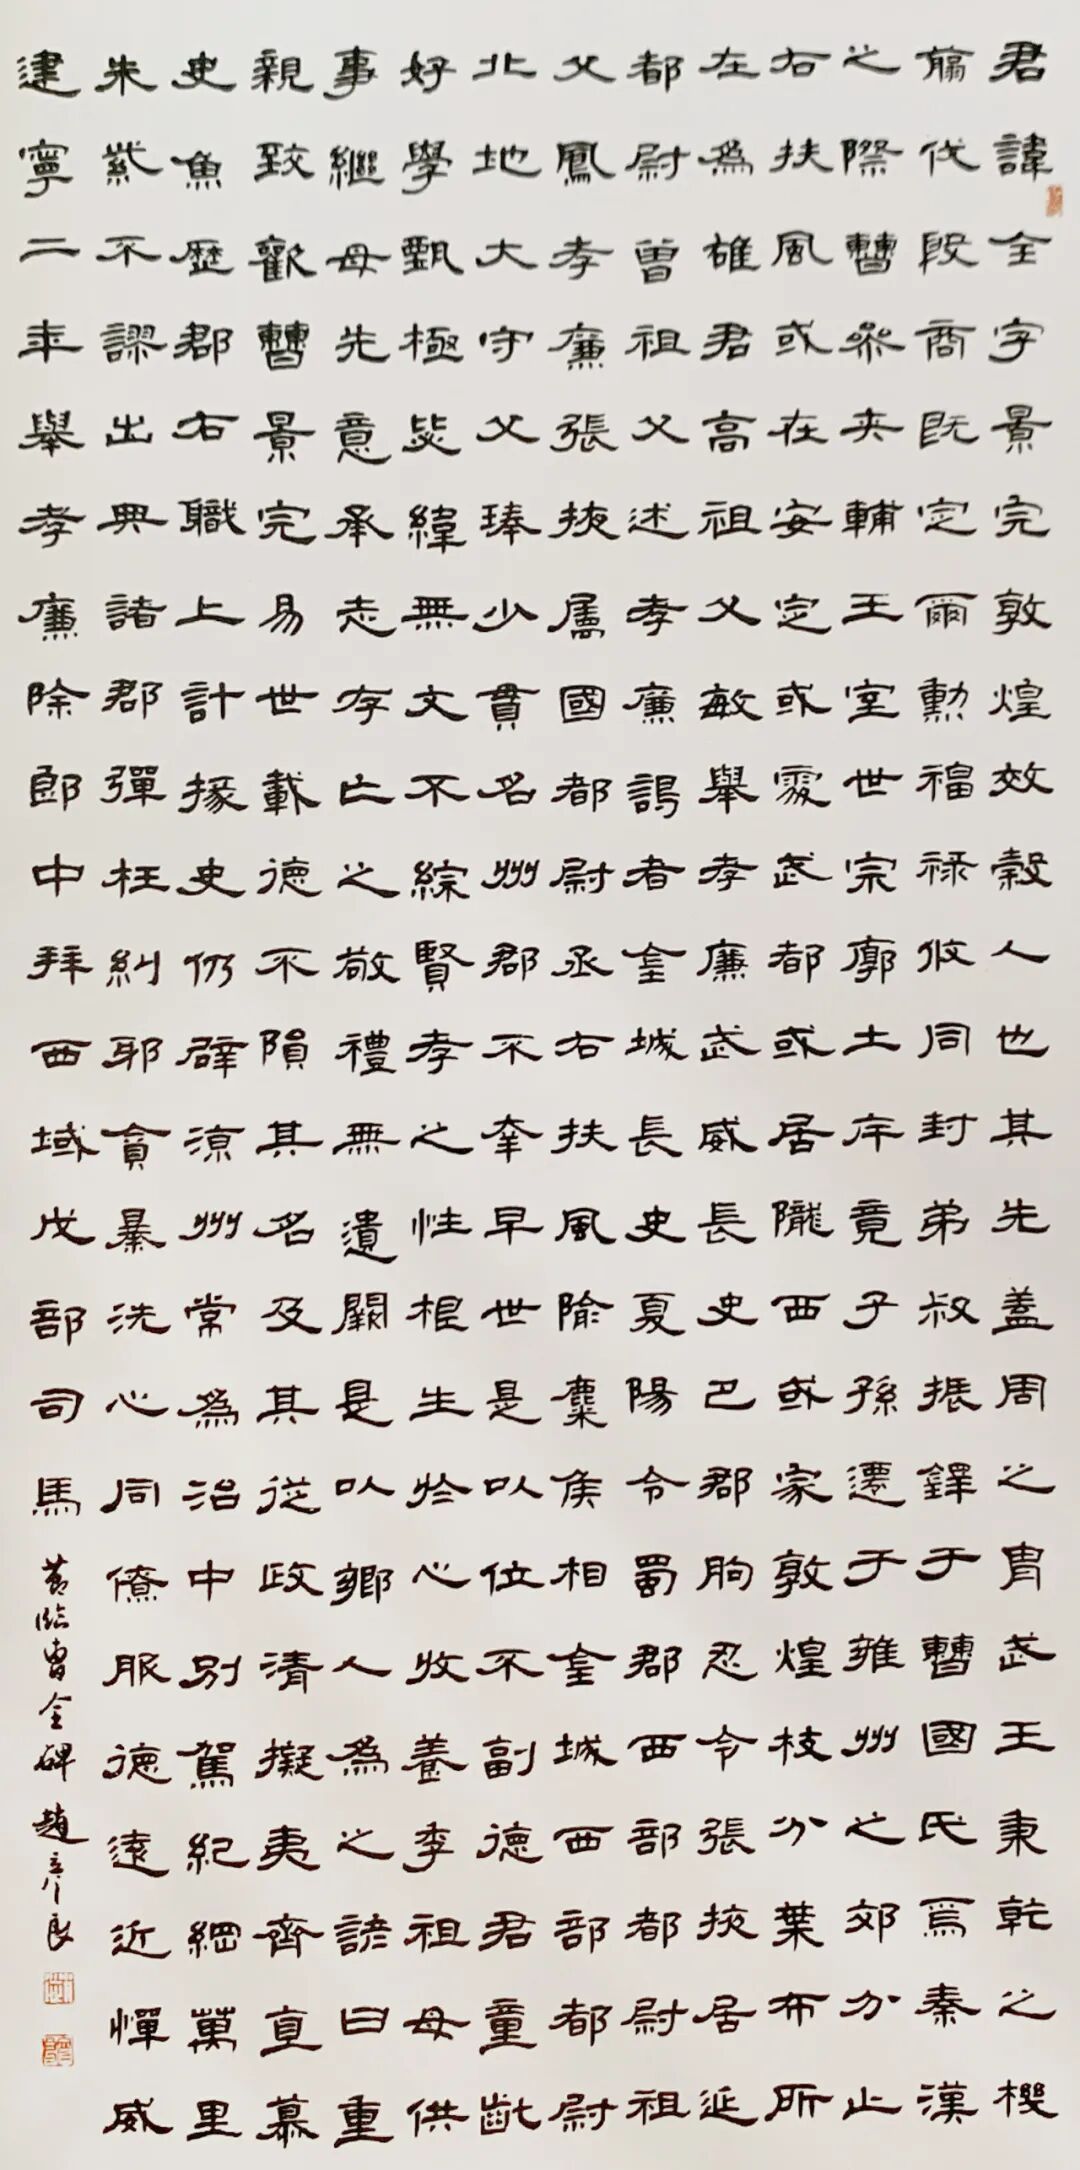 君諱全字景完敦煌效穀人也其先蓋周之胄武王秉乾之機
翦伐殷商既定爾勳福祿攸同封弟叔振鐸于曹國氏焉秦漢
之際曹參夾輔王室世宗廓土斥竟子孫遷于雍州之郊分止
右扶風或在安定或處武都或居隴西或家敦煌枝分葉布所
在為雄君高祖父敏舉孝廉武威長史巴郡朐忍令張掖居延
都尉曾祖父述孝廉謁者金城長史夏陽令蜀郡西部都尉祖
父鳳孝廉張掖屬國都尉丞右扶風隃麋侯相金城西部都尉
北地大守父琫少貫名州郡不幸早世是以位不副德君童齔
好學甄極毖緯無文不綜賢孝之性根生於心收養季祖母供
事繼母先意承志存亡之敬禮無遺闕是以鄉人為之諺曰重
親致歡曹景完易世載德不隕其名及其從政清擬夷齊直慕
史魚歷郡右職上計掾史仍辟涼州常為治中別駕紀綱萬里
朱紫不謬出典諸郡彈枉糾邪貪暴洗心同僚服德遠近憚威
建寧二年舉孝廉除郎中拜西域戊部司馬
節臨曹全碑 趙彥良